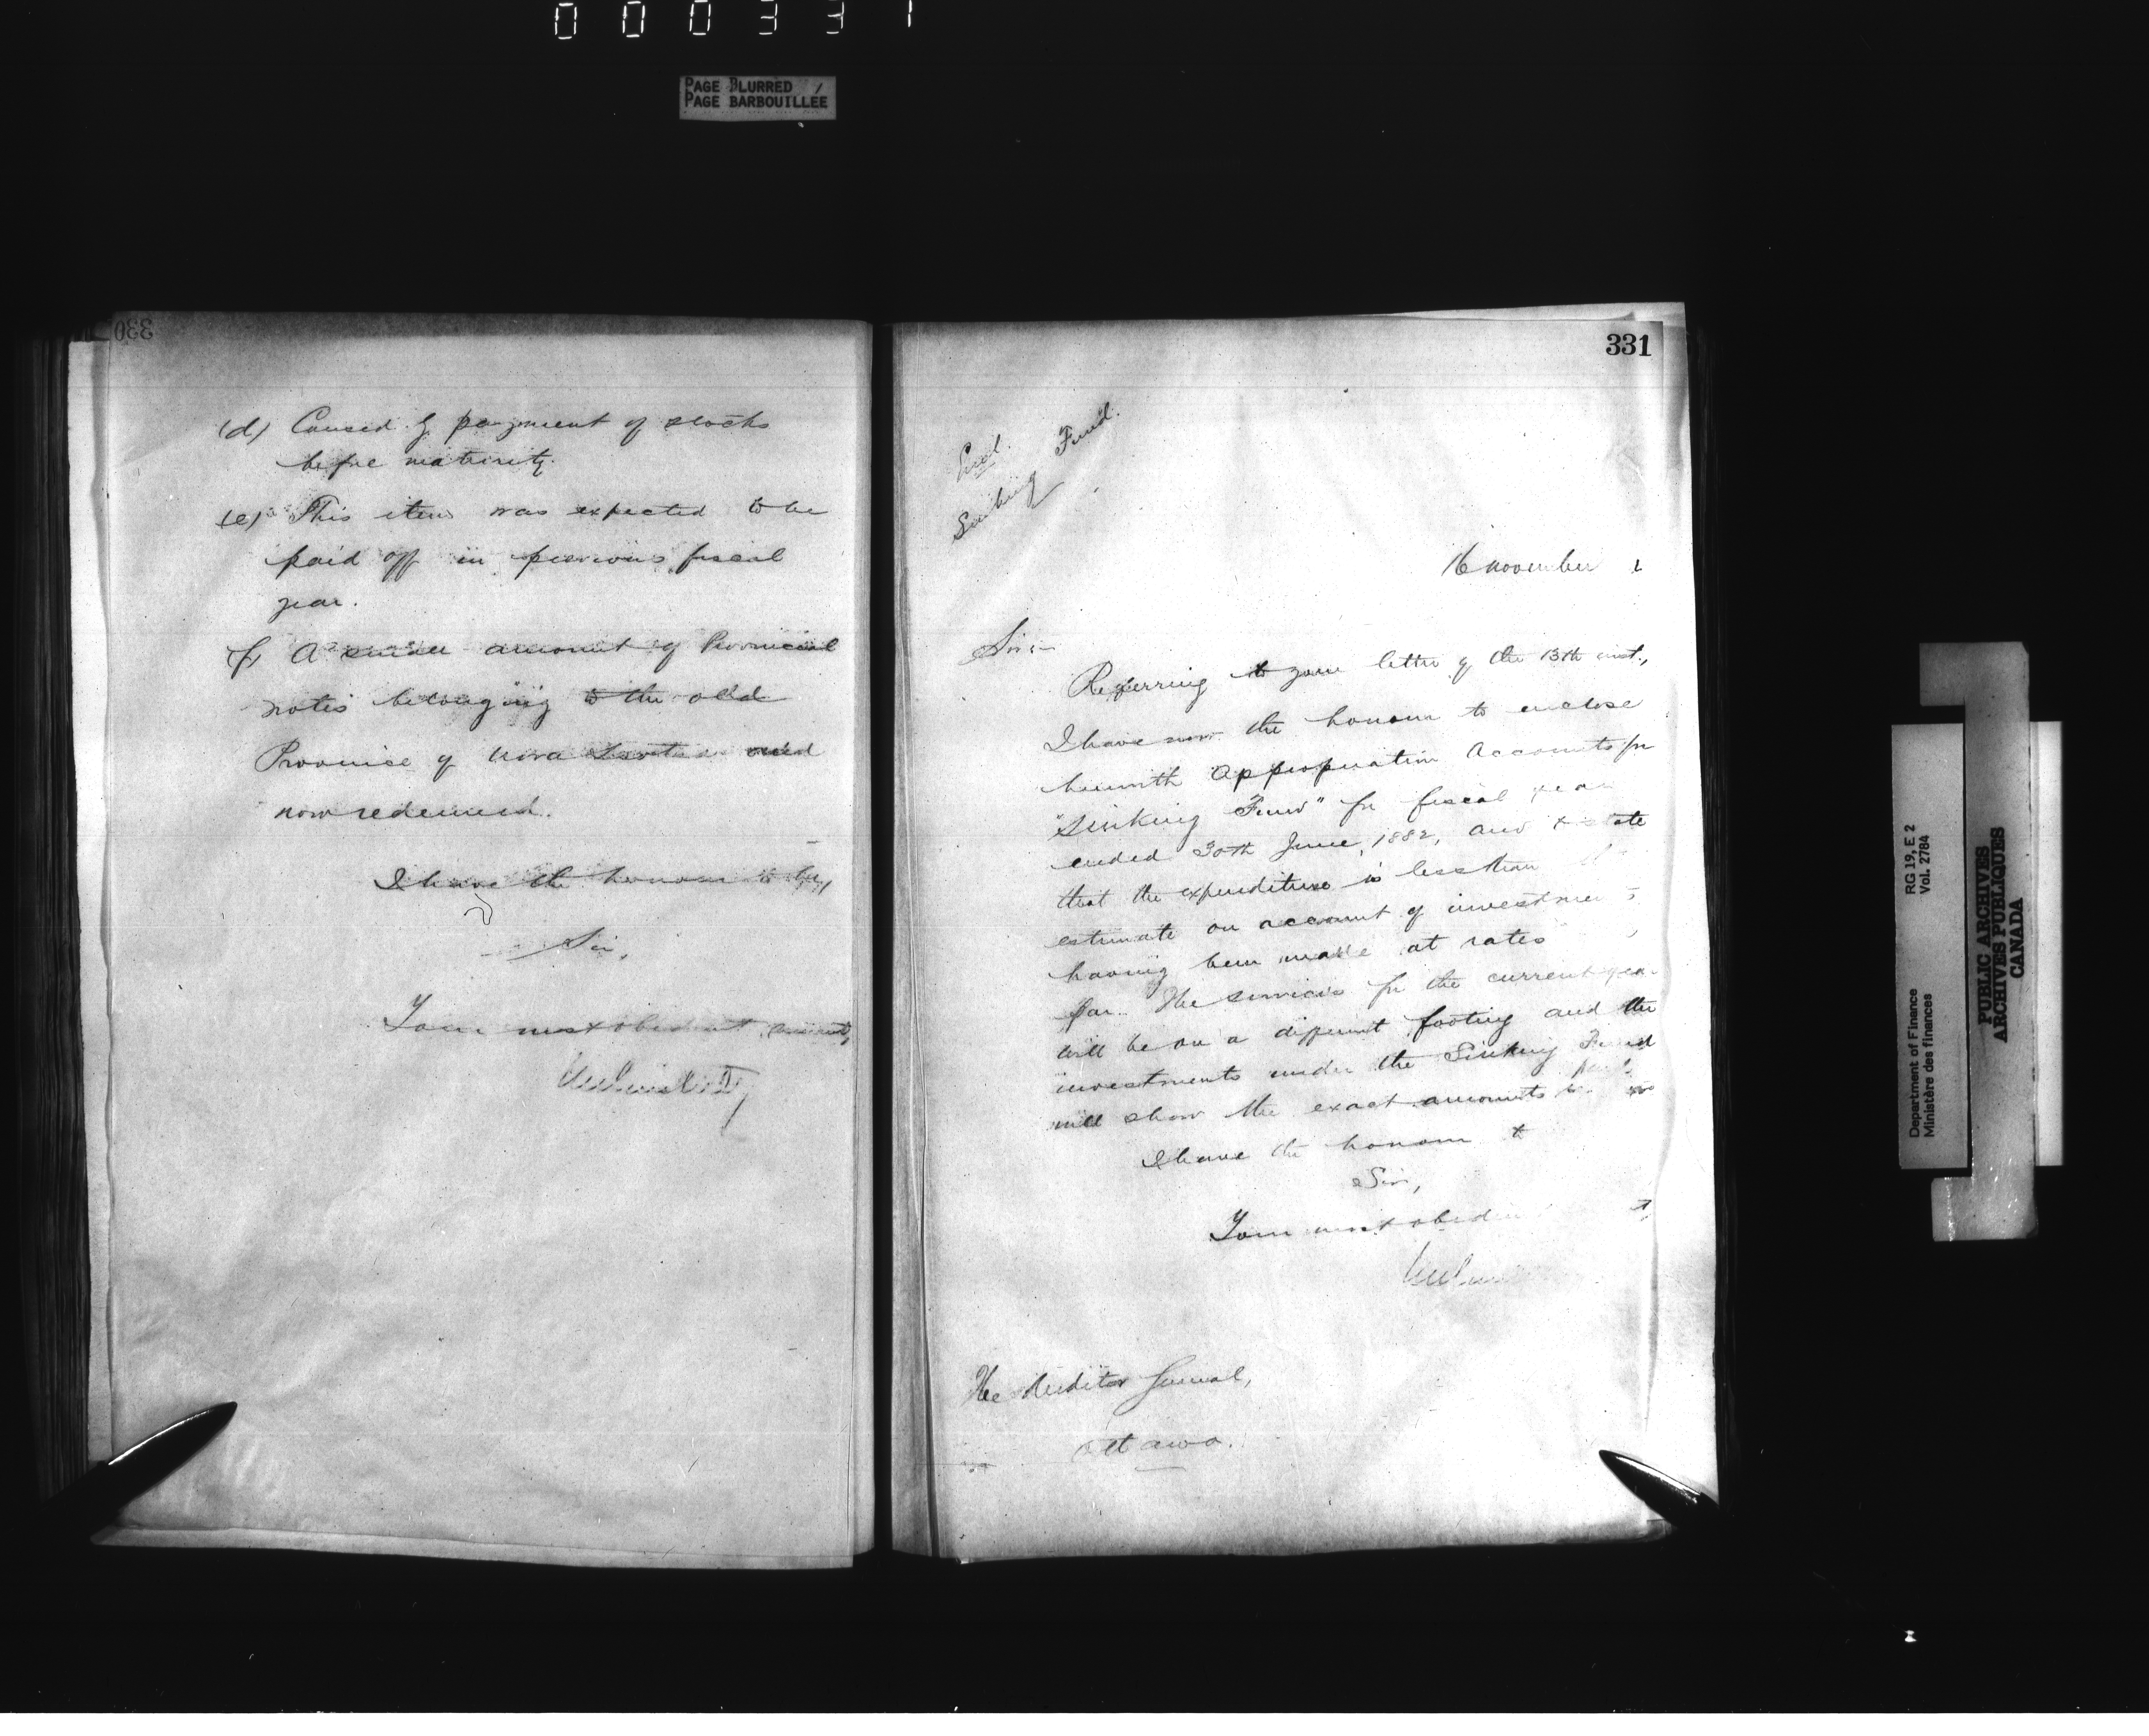 000331
PAGE BLURRED
PAGE BARBOUILLÉE
330
(d) Caused by payment of stocks
before maturity.
(e) This item was expected to be
paid off in previous fiscal
year.
(f) A small amount of Provincial
notes belonging to the old
Province of Nova Scotia and
now redeemed.
I have the honour to be,
Sir,
Your most obedient servant,
331
Encl.
Sinking Fund.
16 November
Sir:-
Referring to your letter of the 13th inst.,
I have now the honour to enclose
herewith Appropriation Accounts for
"Sinking Fund" for fiscal year
ended 30th June, 1882, and to state
that the expenditure is less than
estimate on account of investments
having been made at rates
par. The services for the current year
will be on a different footing and the
investments under the Sinking Fund
will show the exact amounts
I have the honour t
Sir,
Your most obedien
The Auditor General,
Ottawa.
Department of Finance
Ministère des finances
RG 19, E 2
Vol. 2784
PUBLIC ARCHIVES
ARCHIVES PUBLIQUES
CANADA